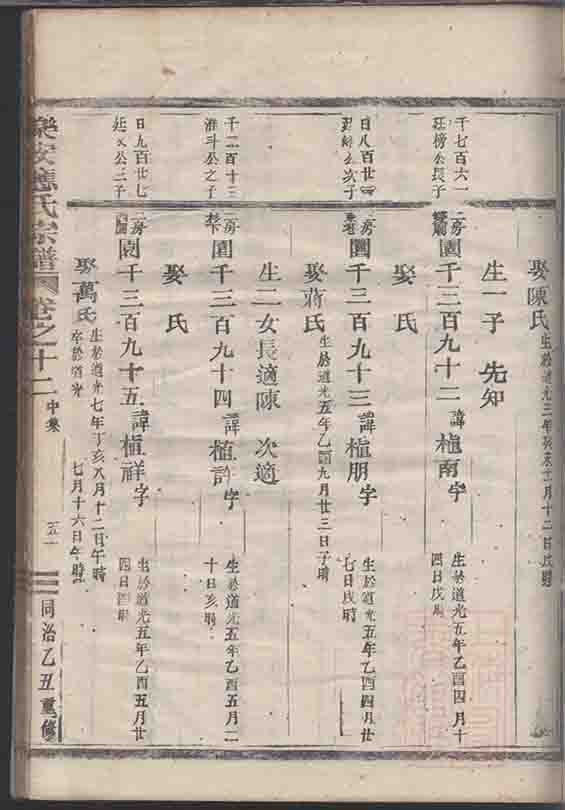 娶陳氏 生於道光三年癸未十二月十二日戌時
生一子 先知
千七百六一
公長子
二房 園千三百九十二 諱植南 字 生於道光五年乙酉四月十四日戌時
娶 氏
日八百廿四
公次子
二房 園千三百九十三 諱植朋 字 生於道光五年乙酉四月廿七日戌時
娶蔣氏 生於道光五年乙酉九月廿三日子時
生二女長適陳 次適
千二百十三
淮斗公之子
二房 園千三百九十四 諱植許 字 生於道光五年乙酉五月二十日亥時
娶 氏
日九百廿七
公三子
二房 園千三百九十五 諱植祥 字 生於道光五年乙酉五月廿四日時
娶萬氏 生於道光七年丁亥八月十二日午時
卒於道光 七月十六日午時
樂安應氏宗譜 卷之十二 中集 五一 同治乙丑重修